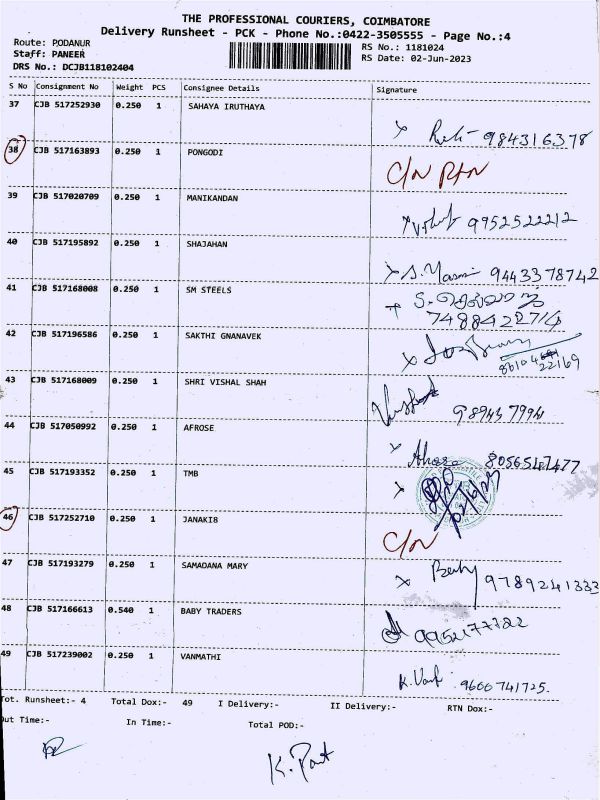 THE PROFESSIONAL COURIERS, COIMBATORE
Delivery Runsheet - PCK - Phone No.:0422-3505555 - Page No.:4
Route: PODANUR
RS No.: 1181024
Staff: PANEER
RS Date: 02-Jun-2023
DRS No.: DCJB118102404
S No Consignment No Weight PCS Consignee Details Signature
37 CJB 517252930 0.250 1 SAHAYA IRUTHAYA
984316378
38 CJB 517163893 0.250 1 PONGODI
C/N RTN
39 CJB 517020709 0.250 1 MANIKANDAN
9952522212
40 CJB 517195892 0.250 1 SHAJAHAN
9443378742
41 CJB 517168008 0.250 1 SM STEELS
7488422714
42 CJB 517196586 0.250 1 SAKTHI GNANAVEK
22169
43 CJB 517168009 0.250 1 SHRI VISHAL SHAH
44 CJB 517050992 0.250 1 AFROSE
8056547477
45 CJB 517193352 0.250 1 TMB
46 CJB 517252710 0.250 1 JANAKI8
C/N
47 CJB 517193279 0.250 1 SAMADANA MARY
Baby 9789241333
48 CJB 517166613 0.540 1 BABY TRADERS
49 CJB 517239002 0.250 1 VANMATHI
9600741725.
Tot. Runsheet:- 4 Total Dox:- 49 I Delivery:- II Delivery:- RTN Dox:-
Out Time:- In Time:- Total POD:-